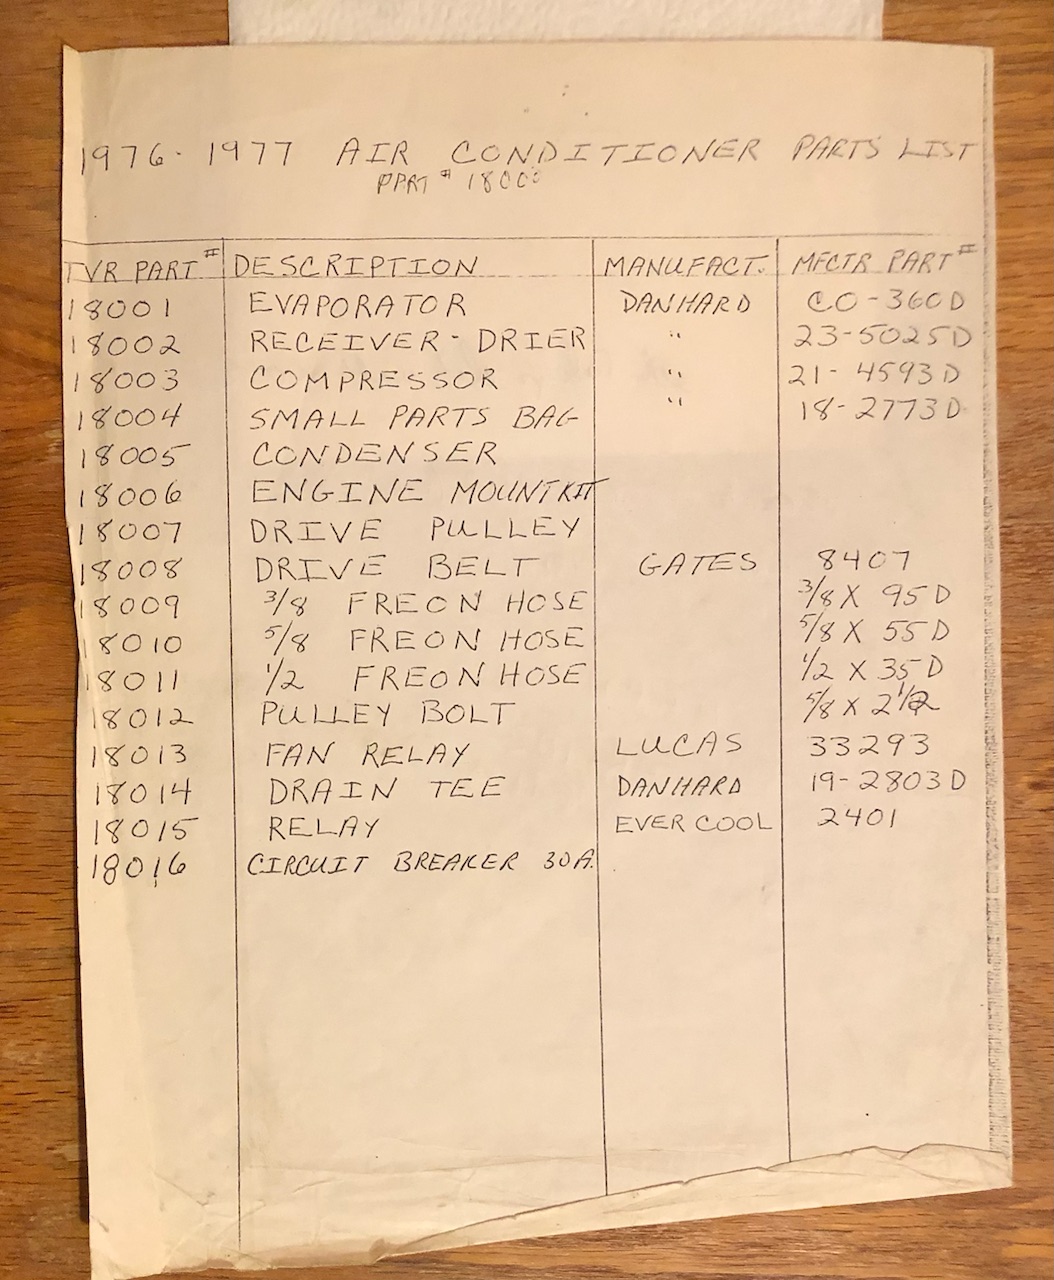 1976-1977 AIR CONDITIONER PARTS LIST
PART # 18000
TVR PART # DESCRIPTION MANUFACT. MFCTR PART #
18001 EVAPORATOR DANHARD CO-360D
18002 RECEIVER-DRIER " 23-5025D
18003 COMPRESSOR " 21-4593D
18004 SMALL PARTS BAG " 18-2773D
18005 CONDENSER
18006 ENGINE MOUNT KIT
18007 DRIVE PULLEY
18008 DRIVE BELT GATES 8407
18009 3/8 FREON HOSE 3/8 X 95D
18010 5/8 FREON HOSE 5/8 X 55D
18011 1/2 FREON HOSE 1/2 X 35D
18012 PULLEY BOLT 5/8 X 2 1/2
18013 FAN RELAY LUCAS 33293
18014 DRAIN TEE DANHARD 19-2803D
18015 RELAY EVER COOL 2401
18016 CIRCUIT BREAKER 30A.